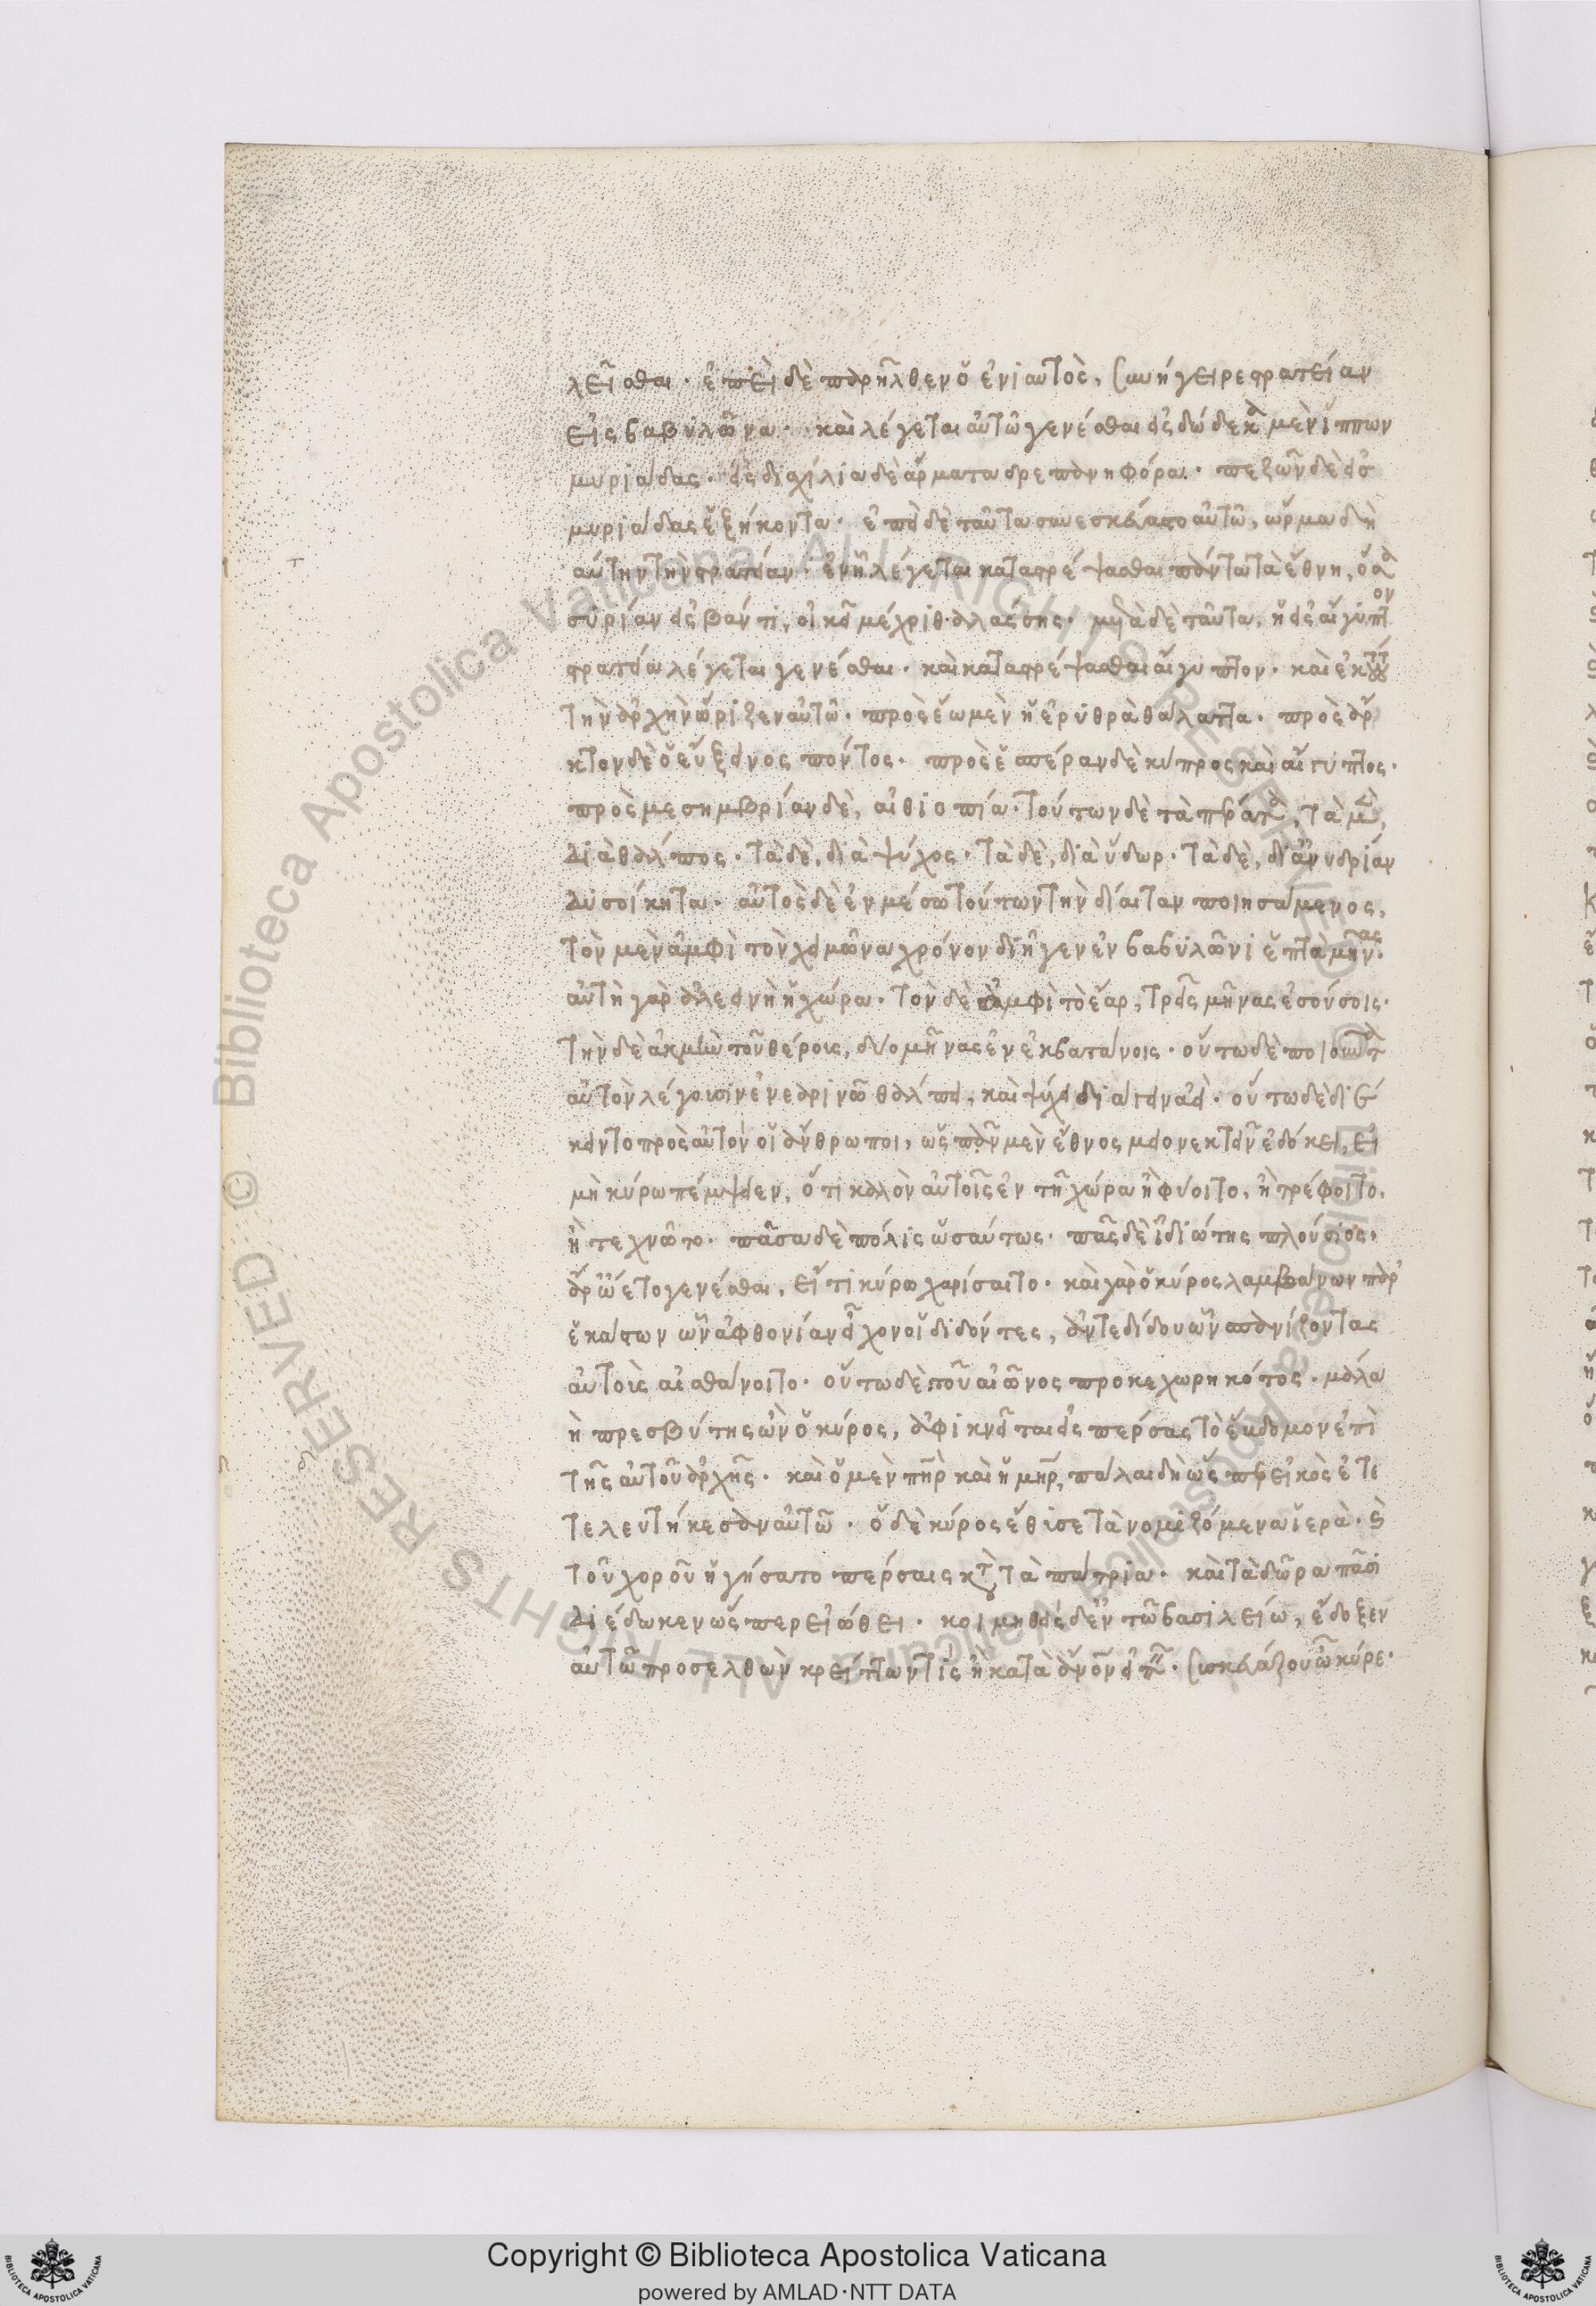 λεῖσθαι· ἐπεὶ δὲ παρῆλθεν ὁ ἐνιαυτὸς, συνήγειρε στρατείαν
εἰς βαβυλῶνα· καὶ λέγεται αὐτῶ γενέσθαι εἰς δώδεκα μὲν ἵππων
μυριάδας· εἰς δισχίλια δὲ ἅρματα δρεπανηφόρα· πεζῶν δὲ εἰς
μυριάδας ἑξήκοντα· ἐπεὶ δὲ ταῦτα συνεσκεύαστο αὐτῶ, ὥρμα δὴ
αὐτὴν τὴν στρατείαν· ἐν ἧ λέγεται καταστρέψασθαι πάντα τὰ ἔθνη, ὅσα
συρίαν εἰσβάντι, οἰκεῖ μέχρι θαλάσσης· μετὰ δὲ ταῦτα, ἡ εἰς αἴγυπτον
στρατεία λέγεται γενέσθαι· καὶ καταστρέψασθαι αἴγυπτον· καὶ ἐκ τούτου
τὴν ἀρχὴν ὥριζεν αὐτῶ· πρὸς ἕω μὲν ἡ ἐρυθρὰ θάλαττα· πρὸς ἄρ
κτον δὲ ὁ εὔξεινος πόντος· πρὸς ἑσπέραν δὲ κύπρος καὶ αἴγυπτος·
πρὸς μεσημβρίαν δὲ, αἰθιοπία· τούτων δὲ τὰ πέρατα, τὰ μὲν,
διὰ θάλπος· τὰ δὲ, διὰ ψύχος· τὰ δὲ, διὰ ὕδωρ· τὰ δὲ, δι' ἀνυδρίαν
δυσοίκητα· αὐτὸς δὲ ἐν μέσω τούτων τὴν δίαιταν ποιησάμενος,
τὸν μὲν ἀμφὶ τὸν χειμῶνα χρόνον διῆγεν ἐν βαβυλῶνι ἑπτὰ μῆνας·
αὐτὴ γὰρ ἀλεεινὴ ἡ χώρα· τὸν δὲ ἀμφὶ τὸ ἔαρ, τρεῖς μῆνας ἐν σούσοις·
τὴν δὲ ἀκμὴν τοῦ θέρους, δύο μῆνας ἐν ἐκβατάνοις· οὕτω δὲ ποιοῦντα
αὐτὸν λέγουσιν ἐν ἐαρινῶ θάλπει, καὶ ψύχει διάγειν ἀεί· οὕτω δὲ διέ
κειντο πρὸς αὐτὸν οἱ ἄνθρωποι, ὡς πᾶν μὲν ἔθνος μειονεκτεῖν ἐδόκει, εἰ
μὴ κύρω πέμψειεν, ὅτι καλὸν αὐτοῖς ἐν τῆ χώρα ἢ φύοιτο, ἢ τρέφοιτο,
ἢ τεχνῶτο· πᾶσα δὲ πόλις ὡσαύτως· πᾶς δὲ ἰδιώτης πλούσιος,
ἂν ὤετο γενέσθαι, εἴ τι κύρω χαρίσαιτο· καὶ γὰρ ὁ κύρος λαμβάνων παρ'
ἑκάστων ὧν ἀφθονίαν εἶχον οἱ διδόντες, ἀντεδίδου ὧν σπανίζοντας
αὐτοὺς αἰσθάνοιτο· οὕτω δὲ τοῦ αἰῶνος προκεχωρηκότος· μάλα
ἢ πρεσβύτης ὢν ὁ κύρος, ἀφικνεῖται εἰς πέρσας τὸ ἕβδομον ἐπὶ
τῆς αὐτοῦ ἀρχῆς· καὶ ὁ μὲν πατὴρ καὶ ἡ μήτηρ, πάλαι δὴ ὥσπερ εἰκὸς ἐτε
τελευτήκεσαν αὐτῶ· ὁ δὲ κύρος ἔθυσε τὰ νομιζόμενα ἱερὰ· καὶ
τοῦ χοροῦ ἡγήσατο πέρσαις κατὰ τὰ πάτρια· καὶ τὰ δῶρα πᾶσι
διέδωκεν ὥσπερ εἰώθει· κοιμηθεὶς δ' ἐν τῶ βασιλείω, ἔδοξεν
αὐτῶ προσελθὼν κρείττων τις ἢ κατὰ ἄνθρωπον εἰπεῖν· συσκευάζου ὦ κύρε·